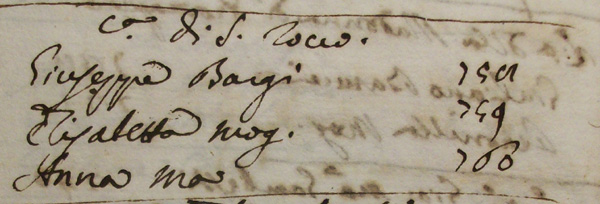 Cᵃ di S. Rocco.
Giuseppe Bargi 758
Elisabetta mog. 759
Anna ma 760